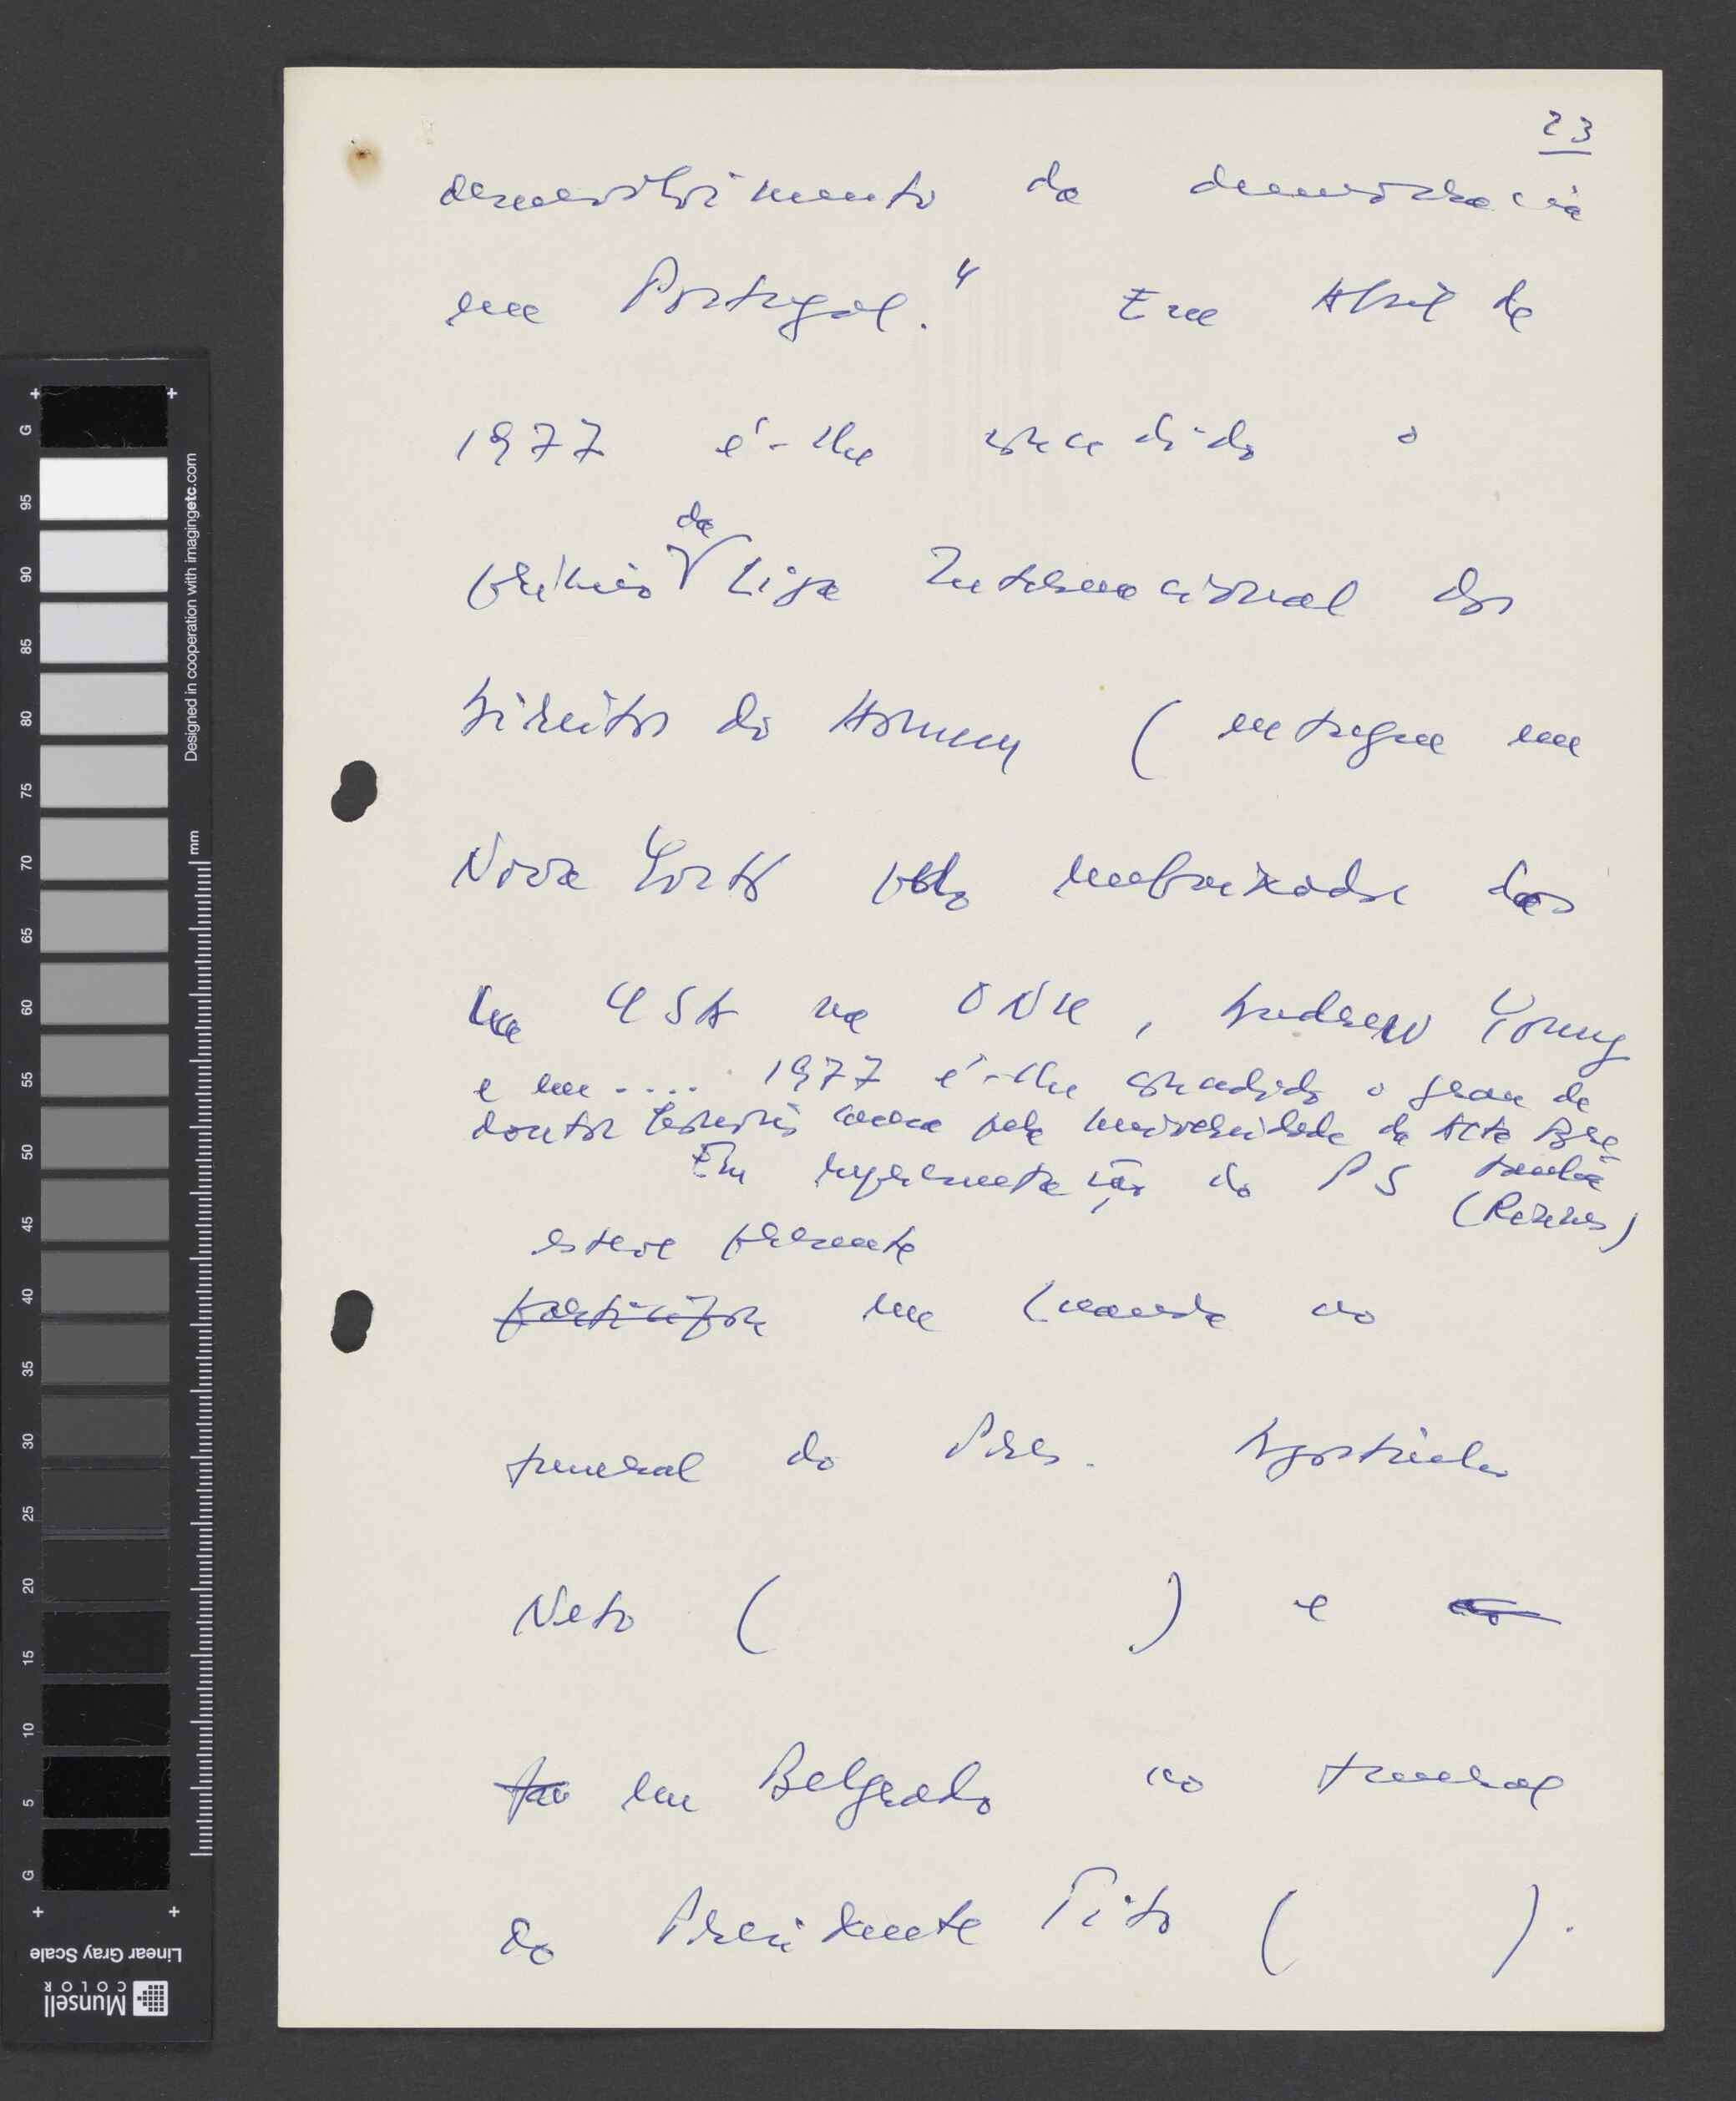 23
desenvolvimento da democracia
em Portugal." Em Abril de
1977 é-lhe concedido o
prémio da Liga Internacional dos
Direitos do Homem (entregue em
Nova York pelo embaixador dos
USA na ONU, Andrew Young
e em .... 1977 é-lhe concedido o grau de
doutor honoris causa pela Universidade da Alta Bre
tanha
(Rennes)
Em representação do PS
esteve presente
participou em Luanda no
funeral do Pres. Agostinho
Neto ( ) e
em Belgrado no funeral
do Presidente Tito ( ).
G
95
90
85
80
75
70
65
60
55
50
45
40
35
30
25
20
15
10
5
G
mm
Designed in cooperation with imagingetc.com
Linear Gray Scale
Munsell
COLOR